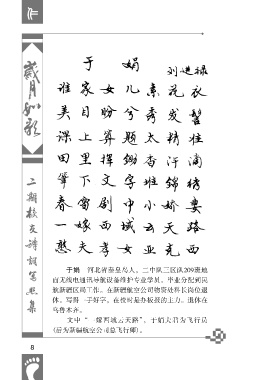 作
岁月如歌
二期校友诗词写照集
于娟
刘建禄
谁家女儿素花衣
美目盼兮秀发髻
课上算题太精佳
田里挥锄香汗滴
笔下文字班锦绣
春雷剧中小娇妻
一嫁西域云天路
憨夫孝女亚克西
于娟 河北省秦皇岛人。二中队三区队209班地
面无线电通讯导航设备维护专业学员。毕业分配到民
航新疆区局工作。在新疆航空公司物资处科长岗位退
休。写得一手好字。在校时是办板报的主力。退休在
乌鲁木齐。
文中“一嫁西域云天路”，于娟丈君为飞行员
(后为新疆航空公司总飞行师)。
8